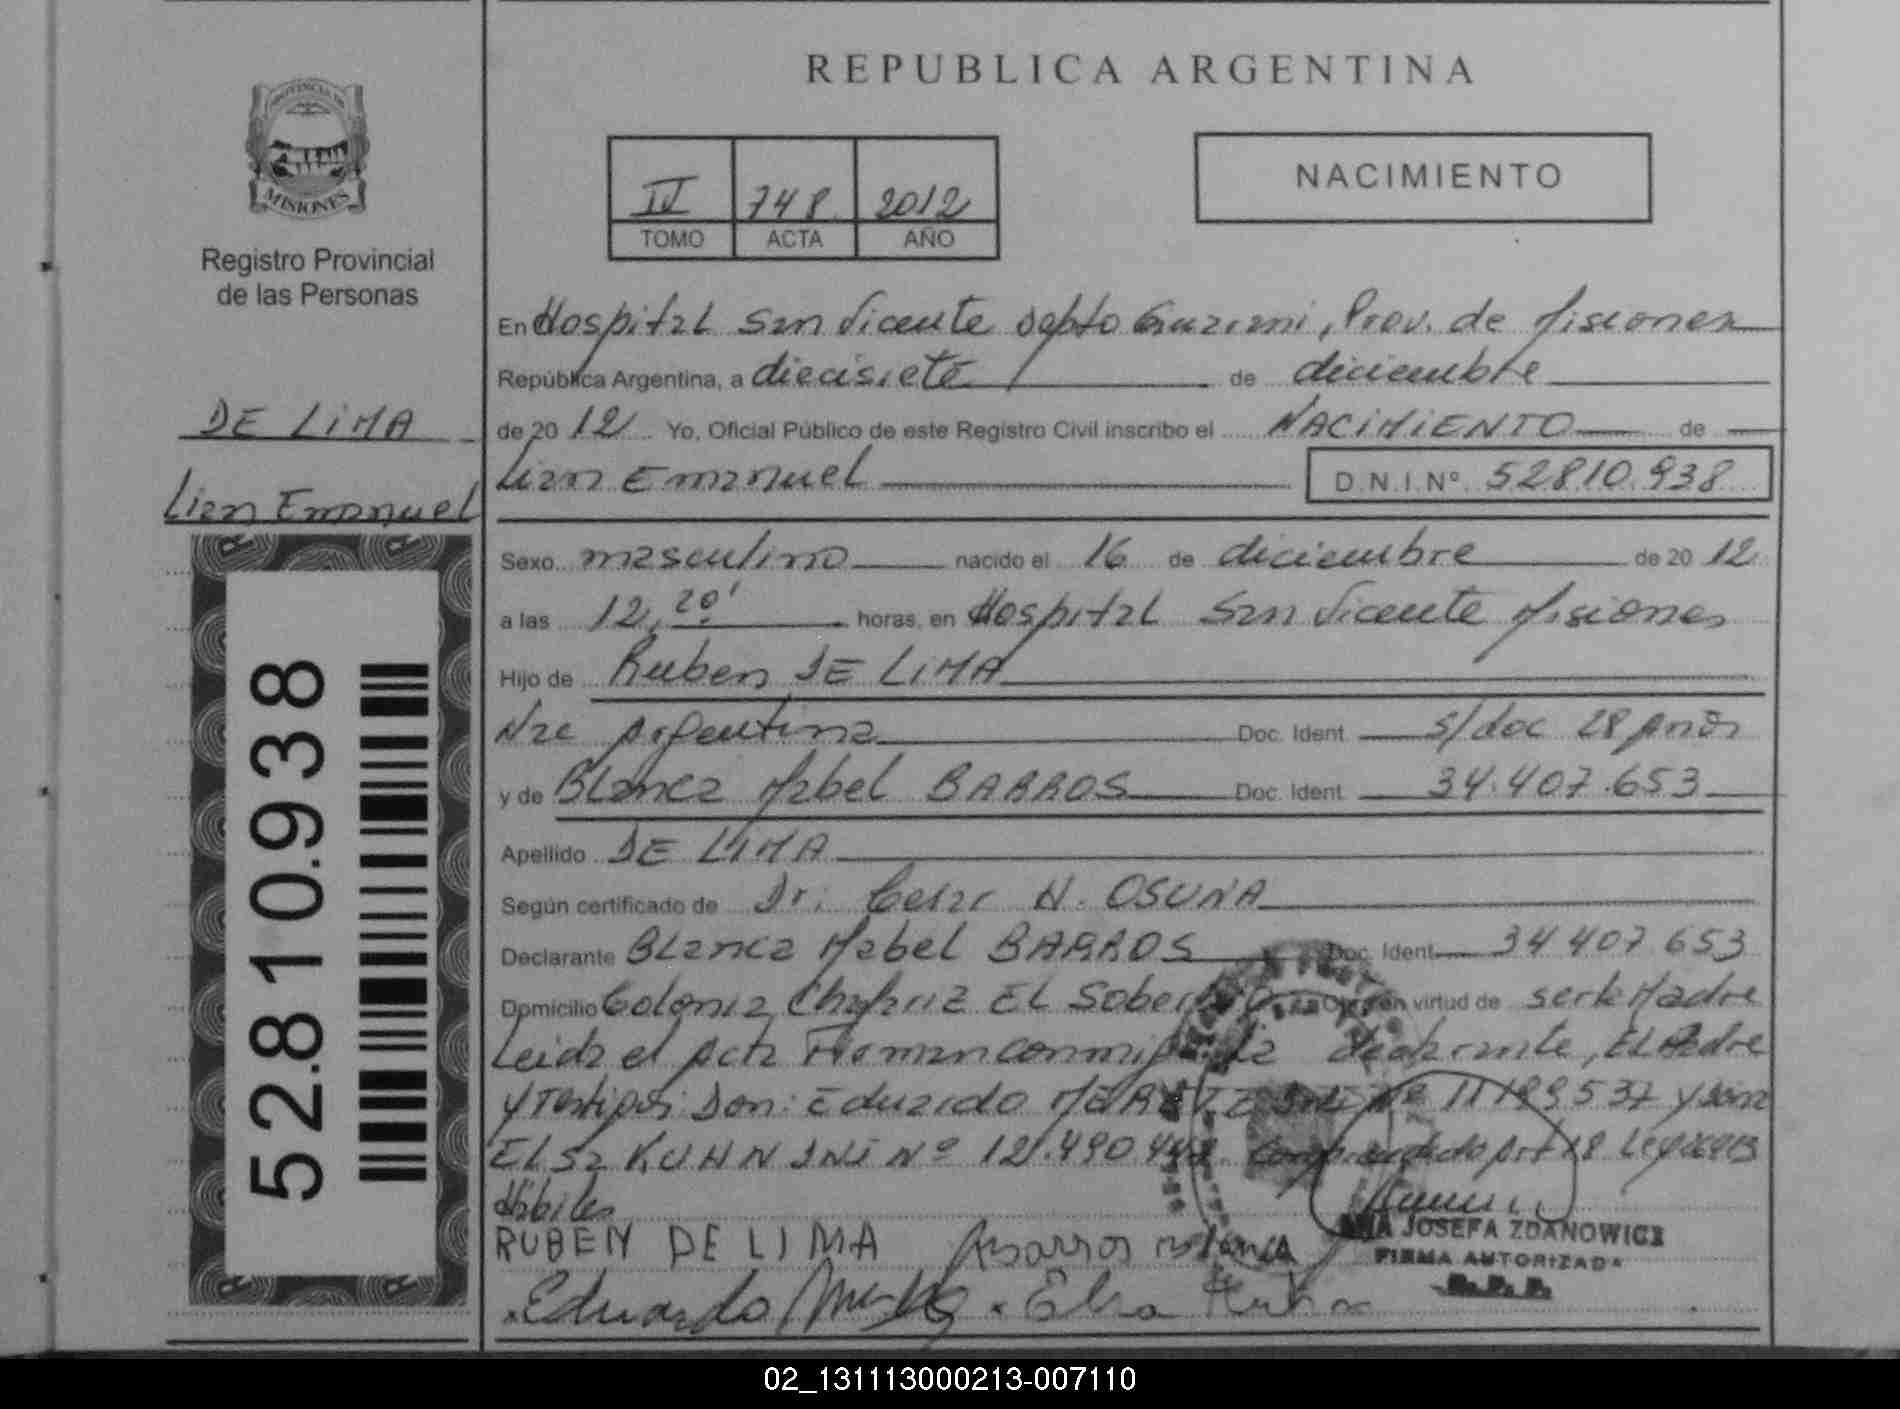 REPUBLICA ARGENTINA
PROVINCIA DE
MISIONES
Registro Provincial
de las Personas
DE LIMA
Lian Emanuel
52.810.938
IV 748 2012
TOMO ACTA AÑO
NACIMIENTO
En Hospital San Vicente Depto Guarani, Prov. de Misiones
República Argentina, a diecisiete de diciembre
de 20 12 Yo, Oficial Público de este Registro Civil inscribo el NACIMIENTO de
Lian Emanuel D.N.I.Nº 52810.938
Sexo masculino nacido el 16 de diciembre de 20 12
a las 12,20' horas, en Hospital San Vicente Misiones
Hijo de Ruben DE LIMA
Nac Argentina Doc. Ident. s/doc 28 Años
y de Blanca Mabel BARROS Doc. Ident. 34.407.653
Apellido DE LIMA
Según certificado de Dr. Cesar N. OSUNA
Declarante Blanca Mabel BARROS Doc. Ident. 34 407 653
Domicilio Colonia EL Soberbio Obra en virtud de ser la Madre
Leida el Acta Firman conmigo la declarante, El Padre
y Testigos Don: Eduardo 537 y Doña
ELSA KUHN DNI Nº 12.490
Hábiles
RUBEN DE LIMA Barros Blanca
ANA JOSEFA ZDANOWICZ
FIRMA AUTORIZADA
R.P.P.
Eduardo Elsa Kuhn
02_131113000213-007110